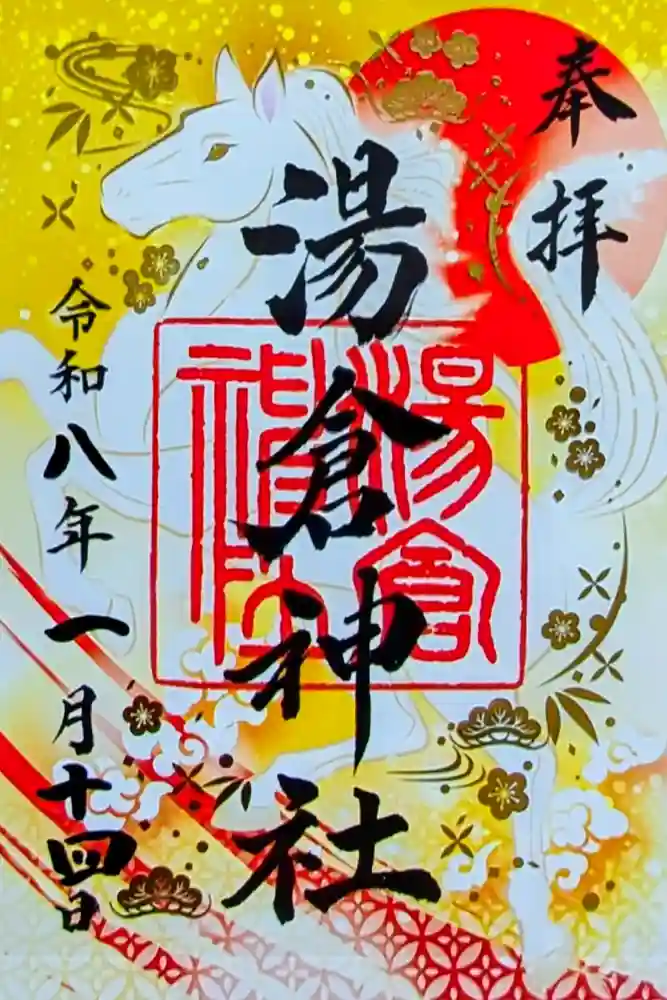 奉拝
湯倉神社
湯倉
神社
令和八年一月十四日